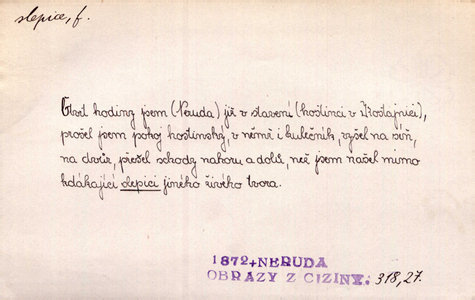 slepice, f.
Čtvrt hodiny jsem (Neruda) již v stavení (hostinci v Kostajnici),
prošel jsem pokoj hostinský, v němž i kulečník, vyšel na síň,
na dvůr, přešel schody nahoru a dolů, než jsem našel mimo
kdákající slepici jiného živého tvora.
1872 + NERUDA
OBRAZY Z CIZINY. 318,27.